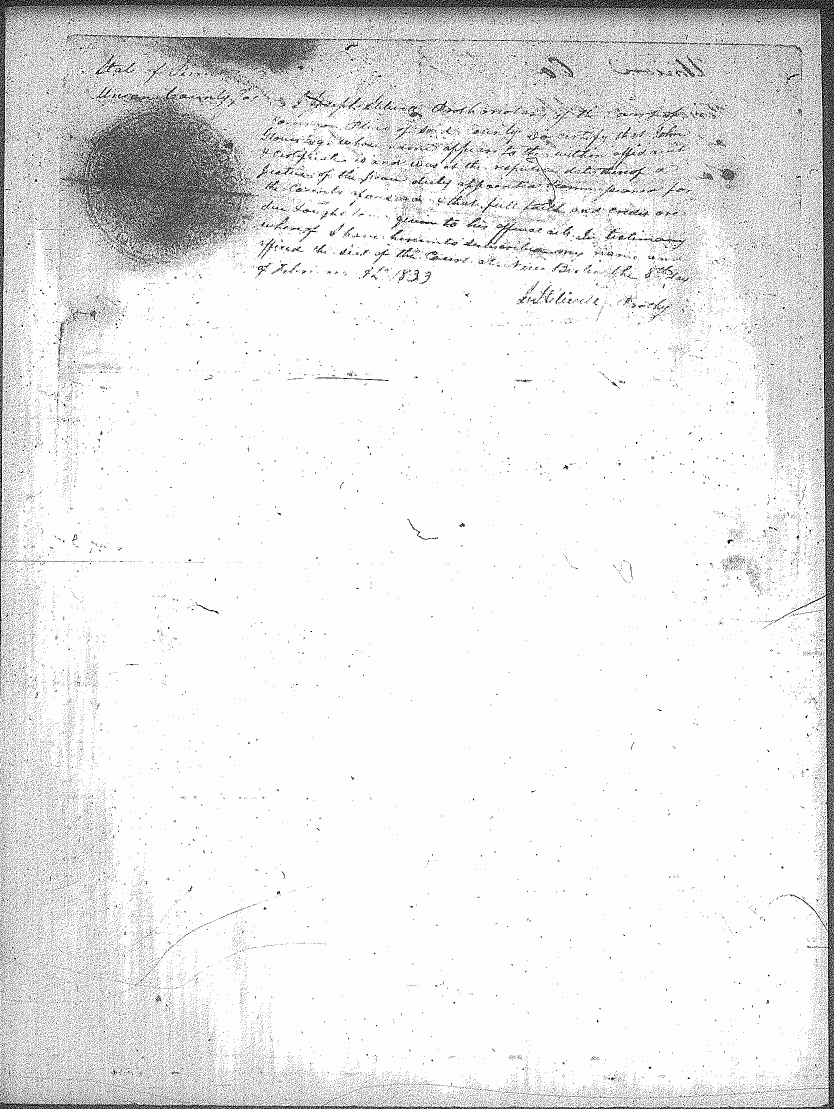 State of Penn
Union County, ss I Joseph Prothonotary of the Court of
Common Pleas of said County Do certify that John
whose name appears to the within affidavit
& certificate is and was at the respective dates thereof a
Justice of the peace duly appointed & Commissioned for
the County aforesaid & that full faith and credit are
due & ought to be given to his official acts. In testimony
whereof I have hereunto subscribed my name and
affixed the seal of the Court at New Berlin the 8th day
of AD 1839
Prothy
Union Co